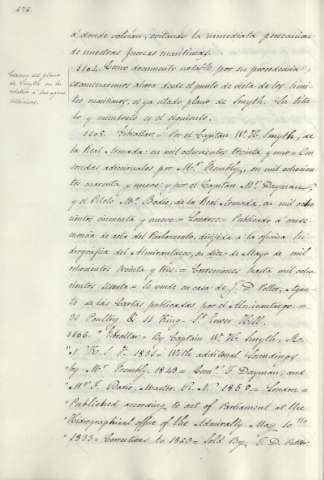 à donde volvian, evitando la inmediata persecucion
de nuestras fuerzas maritimas.
1104. Como documento notable por su procedencia
examinaremos ahora desde el punto de vista de los lími-
tes maritimos, el ya citado plano de Smyth. Su titu-
lo y membrete es el siguiente.
"Gibraltar = Por el Capitan W. H. Smyth, de
la Real Armada: en mil ochocientos treinta y uno = Con
sondas adicionales por Mr.
en mil ochocien-
tos cuarenta y nueve: = por el Capitan Mr. Dayman,
y el Piloto Mr. de la Real Armada, en mil ocho-
cientos cincuenta y nueve = Londres = Publicado à
de acta del Parlamento, dirigida à la oficina hi-
drografica del Almirantazgo, en diez de Mayo de mil
ochocientos treinta y tres = Correcciones hasta mil ocho-
cientos sesenta = Se vende en casa de J. D. Potter, Agen-
te de las Cartas publicadas por el Almirantazgo =
31 Poultry & 11 King St. Tower Hill.
"Gibraltar = By Captain W. H. Smyth, R.
"N. 1831 = With additional Soundings
"by Mr. 1849 = Comr. J. Dayman, and
"Mr. Master R. N. 1859 = Londres =
"Published according to act of Parliament at the
"Hidrographical office of the Admiralty May 10th
"1833 = Corrections to 1860 = Sold By, J. D. Potter